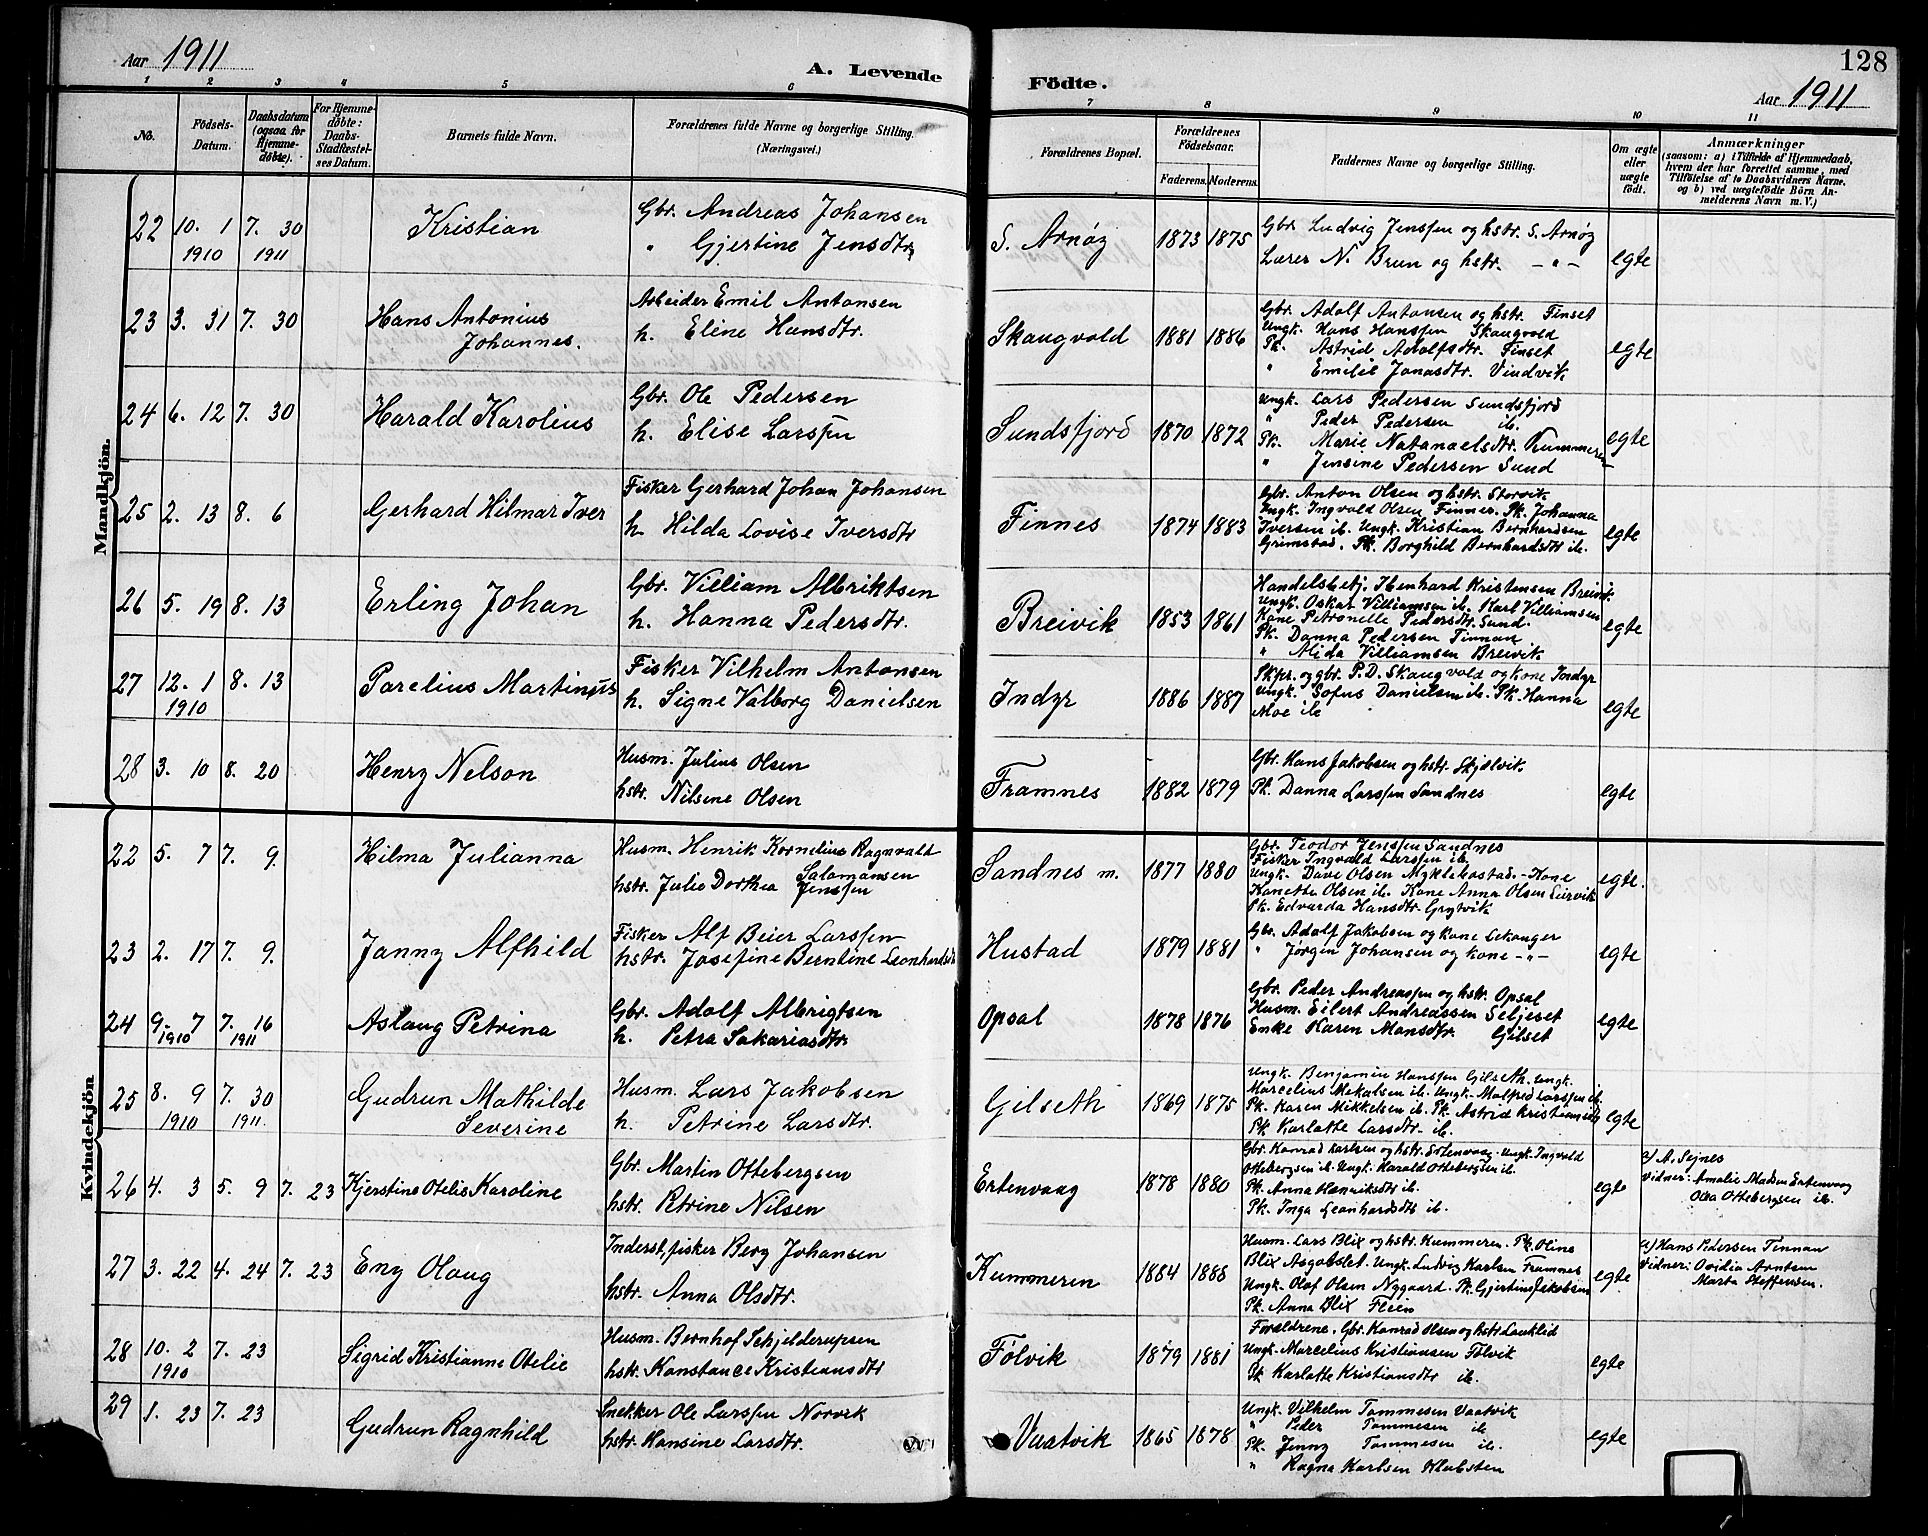 Aar 1911
A. Levende Födte.
128
Aar 1911
1 2 3 4 5 6 7 8 9 10 11
No.
Födsels-Datum.
Daabsdatum (ogsaa for Hjemmedöbte).
For Hjemmedöbte: Daabs-Stadfæstelses Datum.
Barnets fulde Navn.
Forældrenes fulde Navne og borgerlige Stilling. (Næringsvei.)
Forældrenes Bopæl.
Forældrenes Födselsaar.
Faderens. Moderens.
Faddernes Navne og borgerlige Stilling.
Om ægte eller uægte födt.
Anmærkninger
(saasom: a) i Tilfælde af Hjemmedaab, hvem der har forrettet samme, med Tilföielse af to Daabsvidners Navne, og b) ved uægtefödte Börn Anmelderens Navn m. V.)
Mandkjön.
22 10. 1 1910 7. 30 1911 Kristian
Gbr. Andreas Johansen
" Gjertine Jensdtr.
S. Arnøy 1873 1875
Gbr. Ludvig Jenssen og hstr. S. Arnøy
Lærer N. Brun og hstr. -"-
egte
23 3. 31 7. 30 Hans Antonius Johannes.
Arbeider Emil Antonsen
h. Eline Hansdtr.
Skaugvold 1881 1886
Gbr. Adolf Antonsen og hstr. Finset
Ungk. Hans Hanssen Skaugvold
Pk. Astrid Adolfsdtr. Finset
" Emilie Jonasdtr. Vindvik
egte
24 6. 12 7. 30 Harald Karolius
Gbr. Ole Pedersen
h. Elise Larssen
Sundsfjord 1870 1872
Ungk. Lars Pedersen Sundsfjord
" Peder Pedersen ib.
Pk. Marie Natanaelsdtr. Kummeren
" Jensine Pedersen Sund
egte
25 2. 13 8. 6 Gerhard Hilmar Iver
Fisker Gerhard Johan Johansen
h. Hilda Lovise Iversdtr
Finnes 1874 1883
Gbr. Anton Olsen og hstr. Storvik
Ungk. Ingvald Olsen Finnes. Pk. Johanna
Iversen ib. Ungk. Kristian Bernhardsen
Grimstad. Pk. Borghild Bernhardsdtr ib.
egte
26 5. 19 8. 13 Erling Johan
Gbr. Villiam Albriktsen
h. Hanna Pedersdtr.
Breivik 1853 1861
Handelsbetj. Ibenhard Kristensen Breivik.
Ungk. Oskar Villiamsen ib. Karl Villiamsen
Kone Petronelle Pedersdtr. Sund.
Pk. Danna Pedersen Finnan
" Alida Villiamsen Breivik
egte
27 12. 1 1910 8. 13 Parelius Martinus
Fisker Vilhelm Antonsen
h. Signe Valborg Danielsen
Indyr 1886 1887
Skpr. og gbr. P.D. Skaugvold og kone Indyr
Ungk. Sofus Danielsen ib. Pk. Hanna
Moe ib
egte
28 3. 10 8. 20 Henry Nelson
Husm. Julius Olsen
hstr. Nilsine Olsen
Framnes 1882 1879
Gbr. Hans Jakobsen og hstr. Skjelvik.
Pk. Danna Larssen Sandnes
egte
Kvindekjön.
22 5. 7 7. 9. Hilma Julianna
Husm. Henrik Kornelius Ragnvald Salamonsen
hstr. Julie Dorthea Jenssen
Sandnes m. 1877 1880
Gbr. Teodor Jenssen Sandnes
Fisker Ingvald Larssen ib.
Ungk. Dave Olsen Myklebostad. - Kone
Kanette Olsen ib. Kone Anna Olsen Leirvik
Pk. Edvarda Hansdtr. Grytvik
egte.
23 2. 17 7. 9. Janny Alfhild
Fisker Alf Beier Larssen
hstr. Josefine Berntine Leonhardsd
Hustad 1879 1881
Gbr. Adolf Jakobsen og kone Lekanger
" Jørgen Johansen og kone -"-
egte
24 9. 7 1910 7. 16 1911 Aslaug Petrina
Gbr. Adolf Albrigtsen
h. Petra Sakariasdtr.
Opsal 1878 1876
Gbr. Peder Andreassen og hstr. Opsal
Husm. Eilert Andreassen Seljeset
Enke Karen Monsdtr. Gilset
egte
25 8. 9 1910 7. 30 1911. Gudrun Mathilde Severine
Husm. Lars Jakobsen
h. Petrine Larsdtr.
Gilseth 1869 1875
Ungk. Benjamin Hanssen Gilseth. Ungk.
Marcelius Mekalsen ib. Ungk. Malfred Larssen ib.
Pk. Karen Mikkelsen ib. Pk. Astrid Kristiansen
Pk. Karlotte Larsdtr. ib.
egte
26 4. 3 5. 9 7. 23 Kjerstine Otelis Karoline
Gbr. Martin Ottebergsen
hstr. Petrine Nilsen
Ertenvaag 1878 1880
Gbr. Konrad Karlsen og hstr. Ertenvaag. Ungk. Ingvald
Ottebergsen ib. Ungk. Harald Ottebergsen ib.
Pk. Anna Henriksdtr ib.
Pk. Inga Leonhardsdtr ib.
egte
a) A. Sejnes
Vidner: Amalie Madsen Ertenvaag
Olea Ottebergsen ib.
27 3. 22 4. 24 7. 23 Eny Olaug
Inderst, fisker Berg Johansen
hstr. Anna Olsdtr.
Kummeren 1884 1888
Husm. Lars Blix og hstr. Kummeren. Pk. Oline
Blix Asgotslet. Ungk. Ludvig Karlsen Framnes
Ungk. Olof Olsen Nygaard. Pk. Gjertine Jakobsen
Pk. Anna Blix Flein
egte
a) Hans Pedersen Finnan
Vidner: Ovidia Arntsen
Marta Steffensen.
28 10. 2 1910 7. 23 Sigrid Kristianne Otelie
Husm. Bernhof Schjelderupsen
hstr. Konstance Kristiansdtr
Følvik 1879 1881
Forældrene. Gbr. Konrad Olsen og hstr Lauklid
Ungk. Marcelius Kristiansen Følvik
Pk Karlotte Kristiansdtr ib.
egte
29 1. 23 7. 23 Gudrun Ragnhild
Snekker Ole Larssen Norvik
hstr. Hansine Larsdtr.
Vaatvik 1865 1878
Ungk. Vilhelm Tommesen Vaatvik
" Peder Tommesen ib
Pk. Jenny Tommesen ib.
" Ragna Karlsen Klubsten
egte